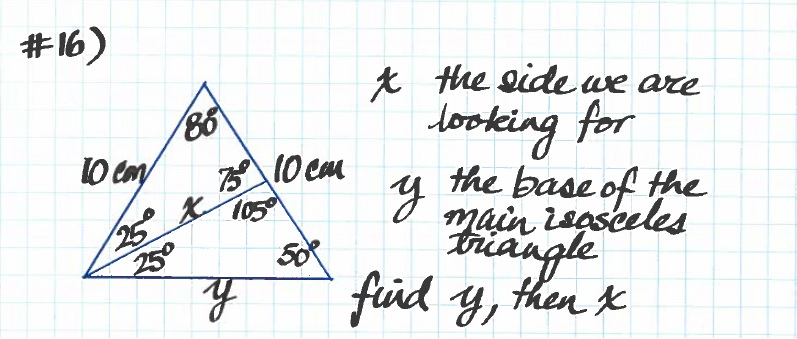 #16)
80°
10 cm
75°
10 cm
x
105°
25°
25°
50°
y
x the side we are
looking for
y the base of the
main isosceles
triangle
find y, then x